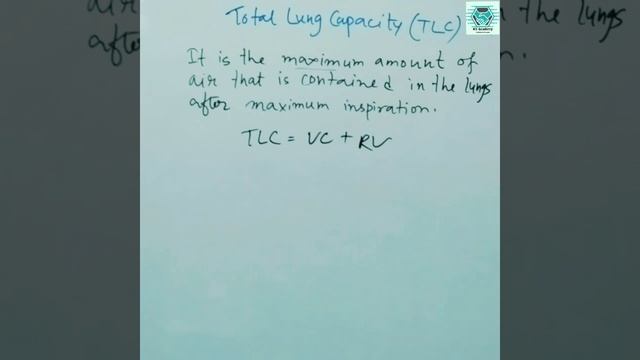 Total Lung Capacity (TLC)
It is the maximum amount of
air that is contained in the lungs
after maximum inspiration.
TLC = VC + RV